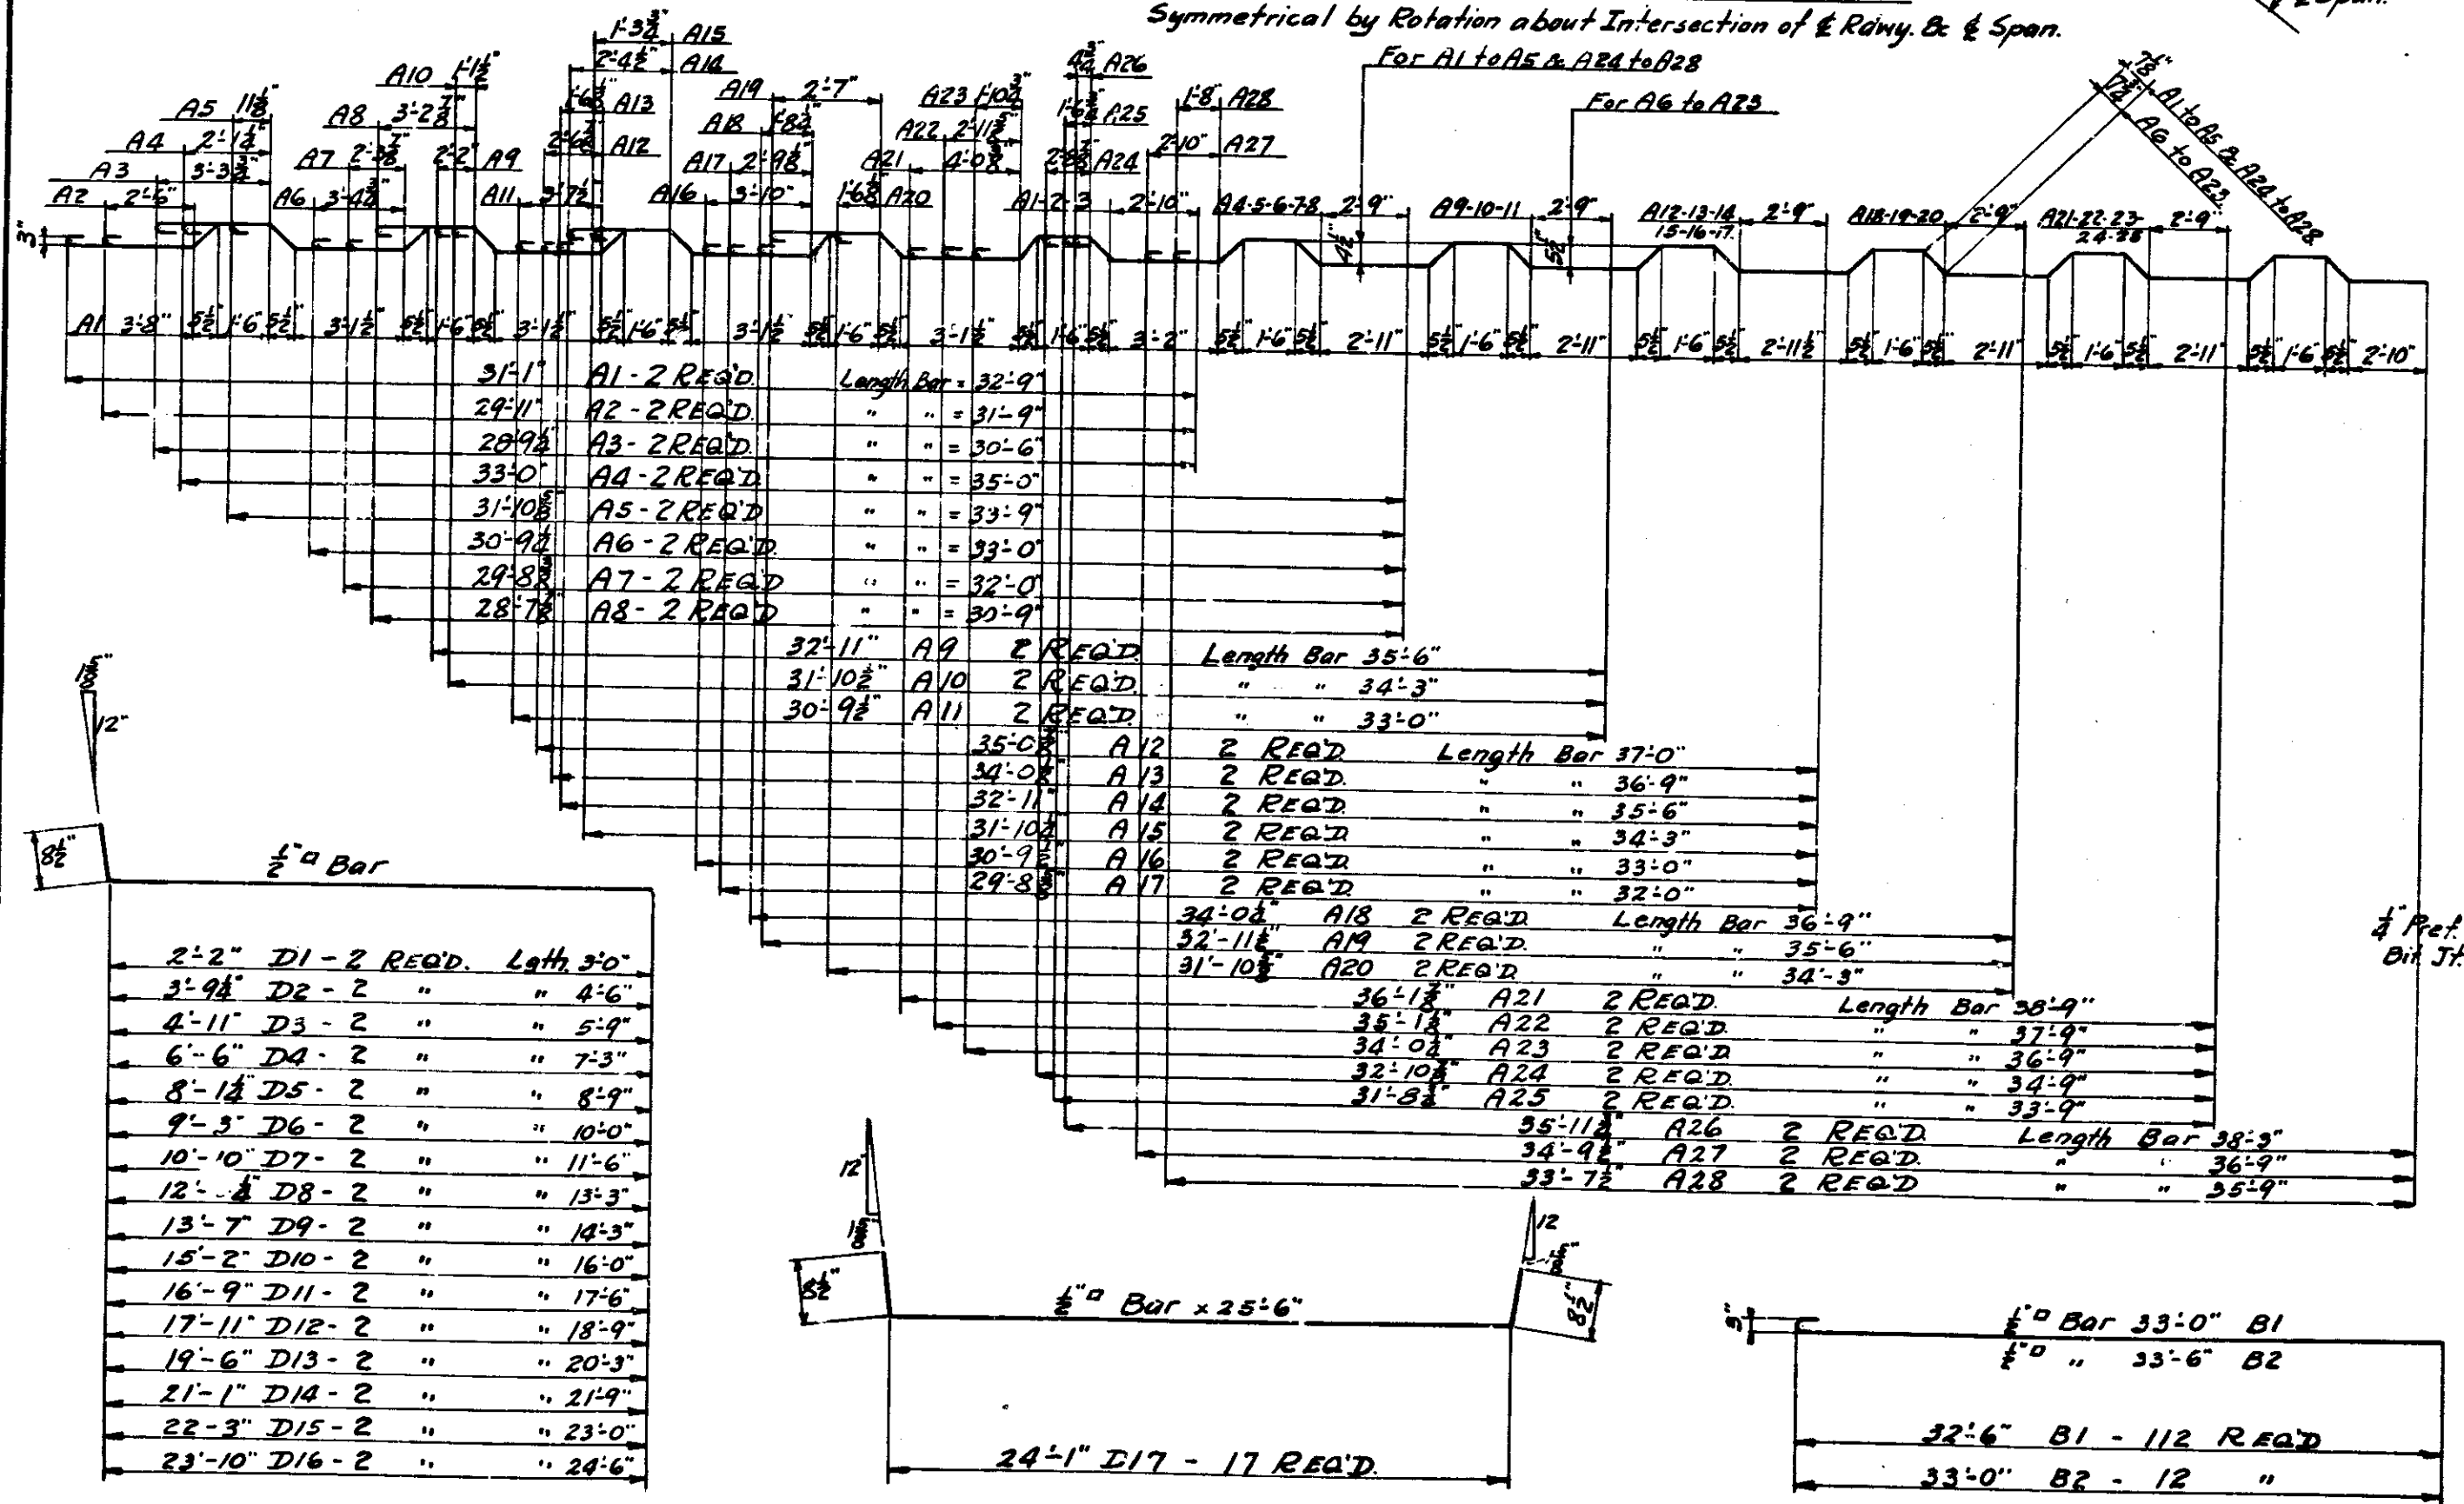 Symmetrical by Rotation about Intersection of ℄ Rdwy. & ℄ Span.
℄ Span.
For A1 to A5 & A24 to A28
For A6 to A23
7⅞" A1 to A5 & A24 to A28
7¾" A6 to A23
1'-3¾" A15
2'-4½" A14
A10 1'-1½"
A19 2'-7"
A23 1'-10¾"
4¾" A26
A5 11⅛"
A8 3'-2⅞"
A13
A18 1'-8¼"
A22
A25
1'-8" A28
A4 2'-1¼"
A7
2'-2" A9
A12
A17 2'-9⅛"
A21
A24
2'-10" A27
A3 3'-3¾"
A2 2'-6"
A6 3'-4¾"
A11 3'-7½"
A16 3'-10"
A20
A1-2-3 2'-10"
A4-5-6-7-8 2'-9"
A9-10-11 2'-9"
A12-13-14 15-16-17 2'-9"
A18-19-20 2'-9"
A21-22-23 24-25 2'-9"
3"
4½"
5½"
A1 3'-8" 5½" 1'-6" 5½" 3'-1½" 5½" 1'-6" 5½" 3'-1½" 5½" 1'-6" 5½" 3'-1½" 5½" 1'-6" 5½" 3'-1½" 5½" 1'-6" 5½" 3'-2" 5½" 1'-6" 5½" 2'-11" 5½" 1'-6" 5½" 2'-11" 5½" 1'-6" 5½" 2'-11½" 5½" 1'-6" 5½" 2'-11" 5½" 1'-6" 5½" 2'-11" 5½" 1'-6" 5½" 2'-10"
31'-1" A1 - 2 REQ'D. Length Bar = 32'-9"
29'-11" A2 - 2 REQ'D. " " = 31'-9"
28'-9¼" A3 - 2 REQ'D. " " = 30'-6"
33'-0" A4 - 2 REQ'D. " " = 35'-0"
31'-10⅝" A5 - 2 REQ'D " " = 33'-9"
30'-9½" A6 - 2 REQ'D. " " = 33'-0"
29'-8⅜" A7 - 2 REQ'D " " = 32'-0"
28'-7⅞" A8 - 2 REQ'D " " = 30'-9"
32'-11" A9 2 REQ'D. Length Bar 35'-6"
31'-10½" A10 2 REQ'D. " " 34'-3"
30'-9½" A11 2 REQ'D. " " 33'-0"
A12 2 REQ'D. Length Bar 37'-0"
A13 2 REQ'D. " " 36'-9"
32'-11" A14 2 REQ'D. " " 35'-6"
31'-10¼" A15 2 REQ'D. " " 34'-3"
A16 2 REQ'D. " " 33'-0"
A17 2 REQ'D. " " 32'-0"
34'-0¼" A18 2 REQ'D. Length Bar 36'-9"
A19 2 REQ'D. " " 35'-6"
A20 2 REQ'D. " " 34'-3"
A21 2 REQ'D. Length Bar 38'-9"
A22 2 REQ'D. " " 37'-9"
34'-0¼" A23 2 REQ'D. " " 36'-9"
A24 2 REQ'D. " " 34'-9"
A25 2 REQ'D. " " 33'-9"
A26 2 REQ'D. Length Bar 38'-3"
34'-9½" A27 2 REQ'D. " " 36'-9"
33'-7½" A28 2 REQ'D " " 35'-9"
¼" Pref.
Bit. Jt.
1⅝"
12"
8½"
½"□ Bar
2'-2" D1 - 2 REQ'D. Lgth. 3'-0"
3'-9¼" D2 - 2 " " 4'-6"
4'-11" D3 - 2 " " 5'-9"
6'-6" D4 - 2 " " 7'-3"
8'-1¼" D5 - 2 " " 8'-9"
9'-3" D6 - 2 " " 10'-0"
10'-10" D7 - 2 " " 11'-6"
12'- D8 - 2 " " 13'-3"
13'-7" D9 - 2 " " 14'-3"
15'-2" D10 - 2 " " 16'-0"
16'-9" D11 - 2 " " 17'-6"
17'-11" D12 - 2 " " 18'-9"
19'-6" D13 - 2 " " 20'-3"
21'-1" D14 - 2 " " 21'-9"
22'-3" D15 - 2 " " 23'-0"
23'-10" D16 - 2 " " 24'-6"
12
1⅝"
8½"
½"□ Bar x 25'-6"
12
1⅝"
8½"
24'-1" D17 - 17 REQ'D.
3"
½"□ Bar 33'-0" B1
½"□ " 33'-6" B2
32'-6" B1 - 112 REQ'D
33'-0" B2 - 12 "